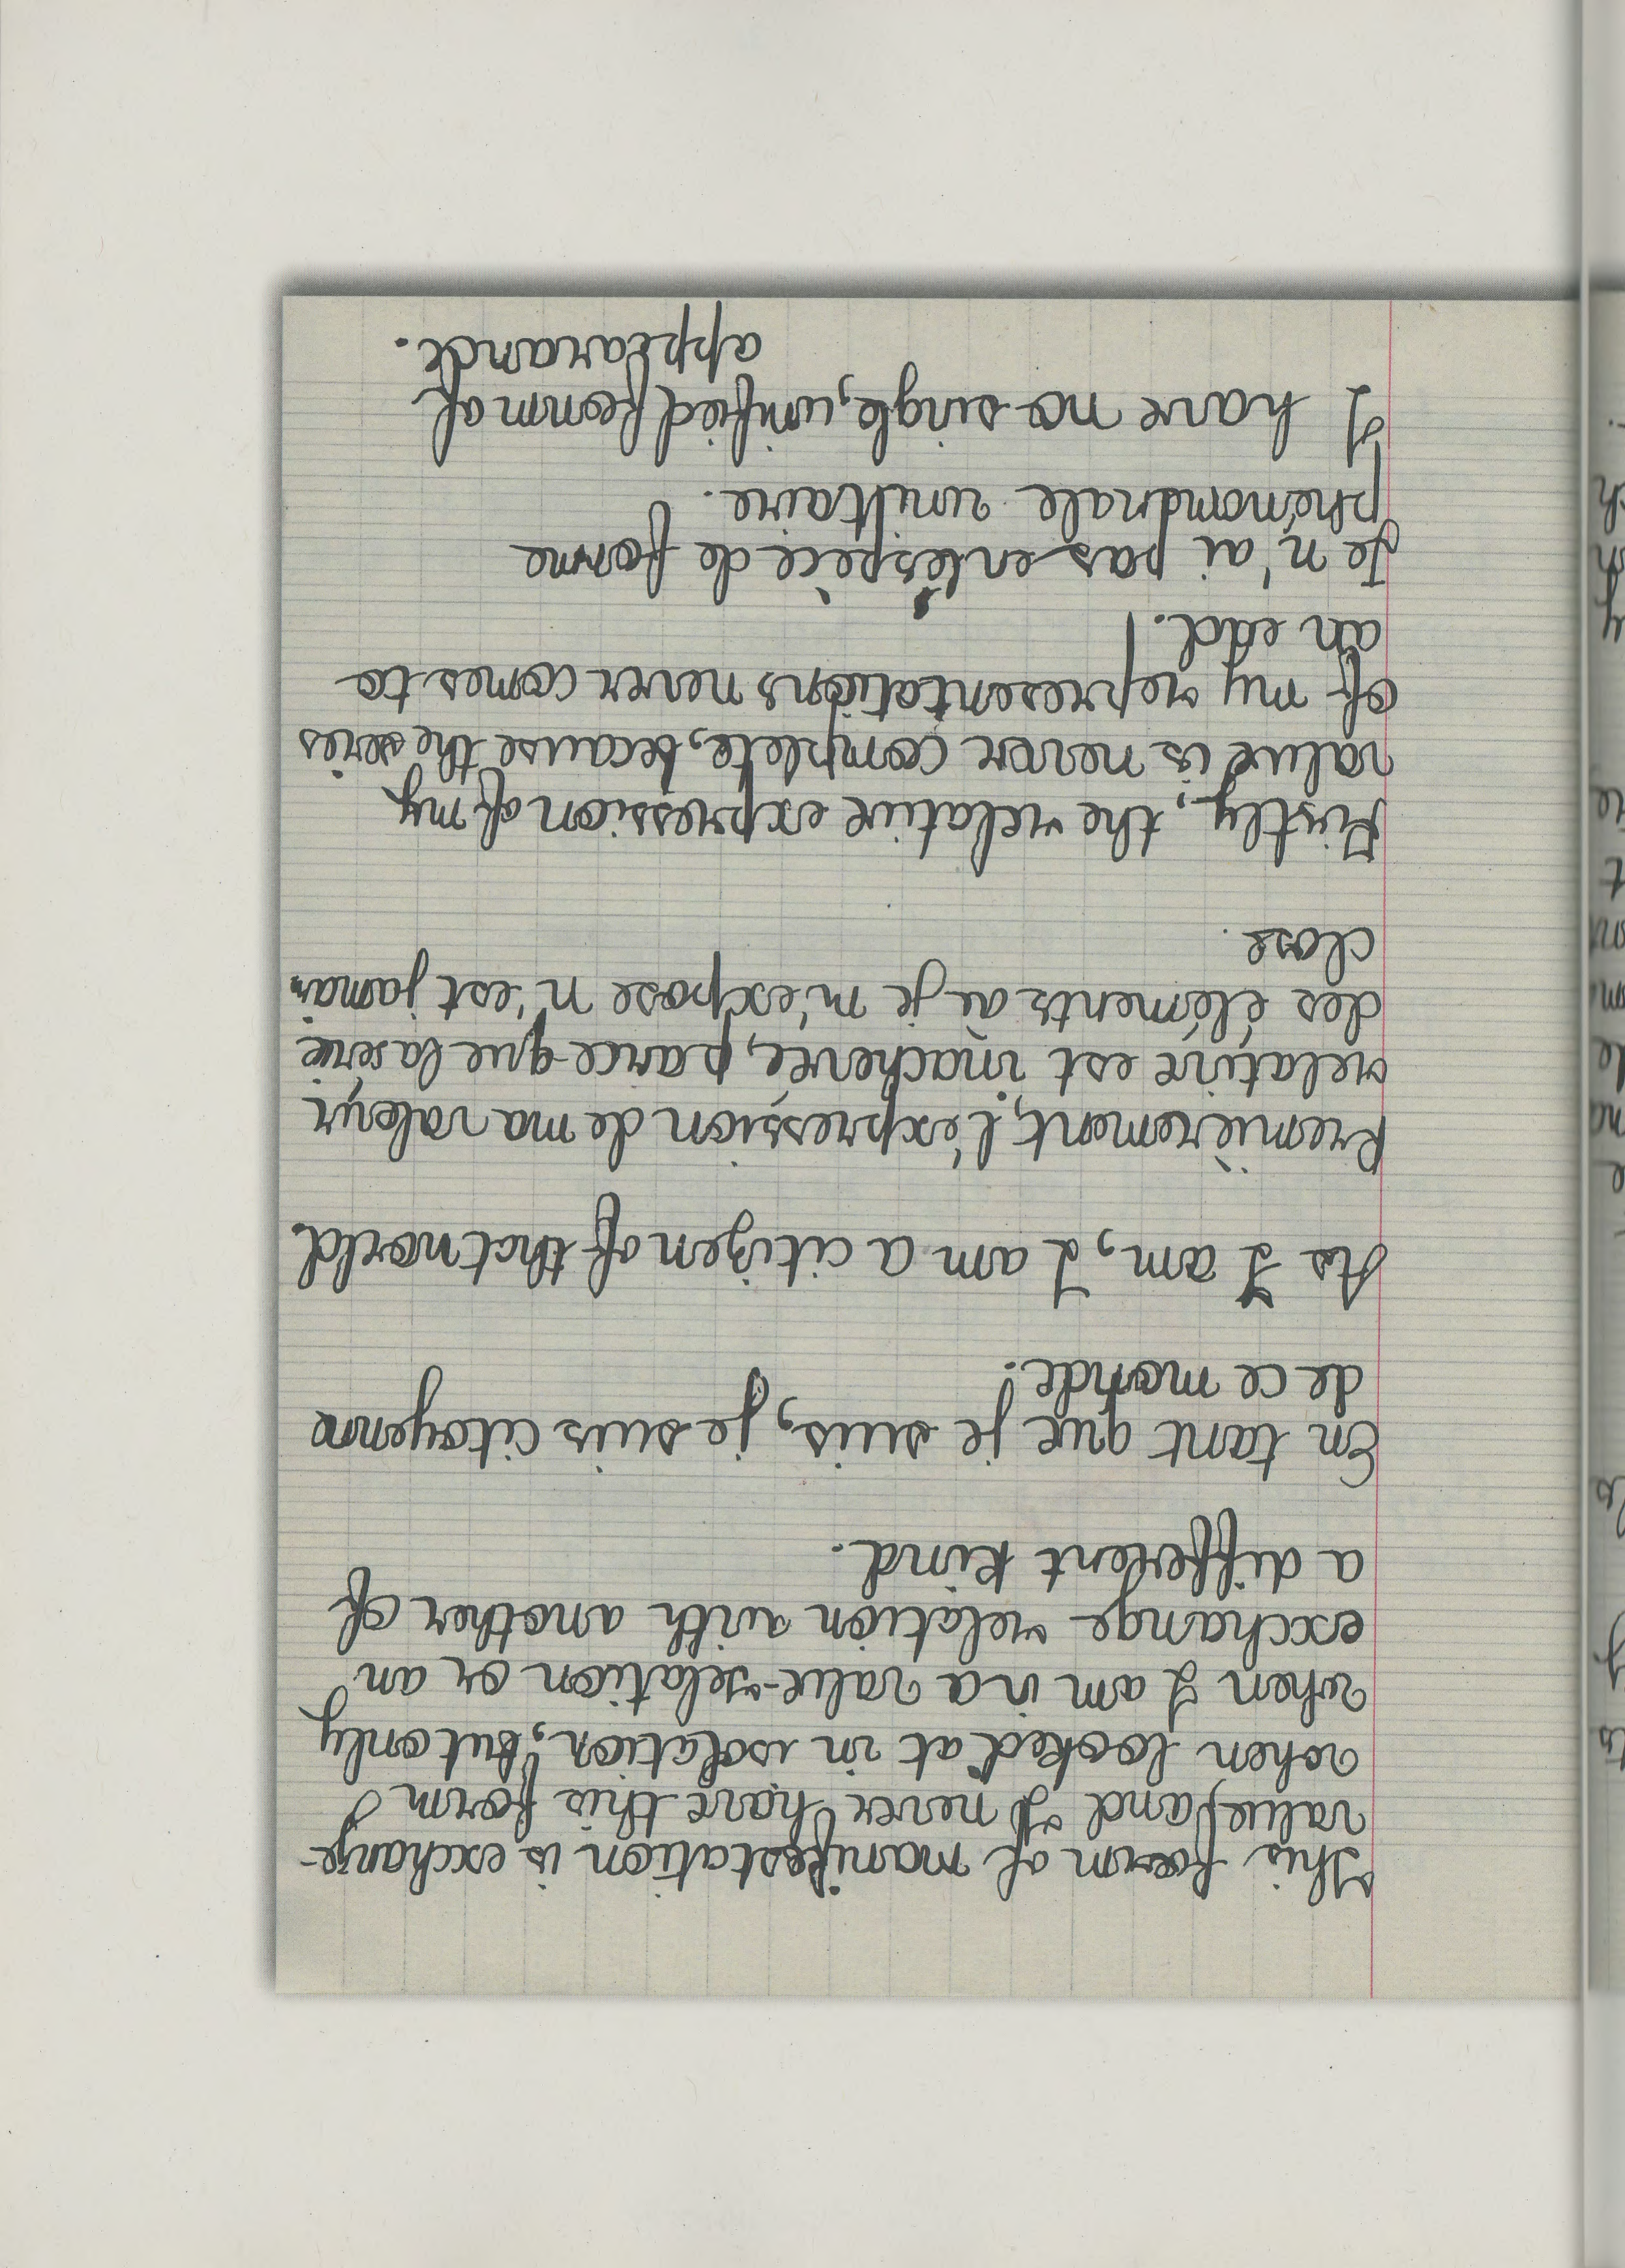 This form of manifestation is exchange-
value, and I never have this form
when looked at in isolation, but only
when I am in a value-relation or an
exchange relation with another of
a different kind.
En tant que je suis, je suis citoyenne
de ce monde.
As I am, I am a citizen of that world.
Premièrement, l'expression de ma valeur
relative est inachevée, parce que la serie
des éléments où je m'expose n'est jamais
close.
Firstly, the relative expression of my
value is never complete, because the series
of my representations never comes to
an end.
Je n'ai pas en l'espèce de forme
phénoménale unitaire.
I have no single, unified form of
appearance.